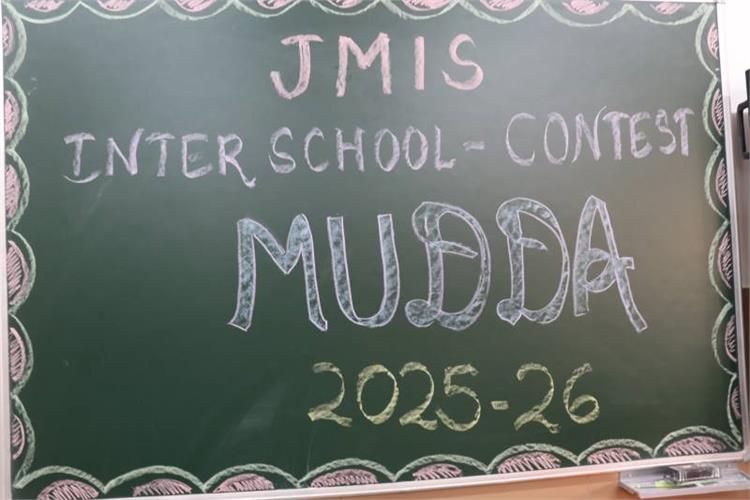 JMIS
INTER SCHOOL - CONTEST
MUDDA
2025-26